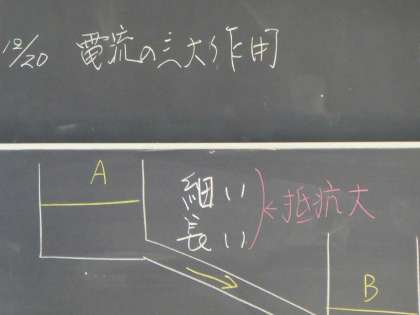 12/20 電流の三大作用
A
細い
長い
抵抗大
B